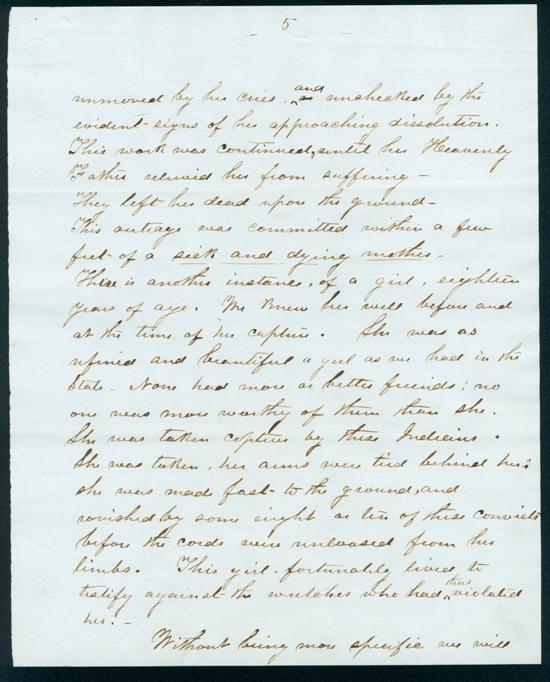 5
unmoved by her cries, and unchecked by the
evident signs of her approaching dissolution.
This work was continued, until her Heavenly
Father relieved her from suffering —
They left her dead upon the ground —
This outrage was committed within a few
feet of a sick and dying mother —
There is another instance, of a girl, eighteen
years of age. We knew her well before and
at the time of her capture. She was as
refined and beautiful a girl as we had in the
State. None had more or better friends; no
one was more worthy of them than she.
She was taken captive by these Indians.
She was taken, her arms were tied behind her;
she was made fast to the ground, and
ravished by some eight or ten of these convicts
before the cords were unloosed from her
limbs. This girl, fortunately, lived to
testify against the wretches who had thus violated
her. —
Without being more specific we will